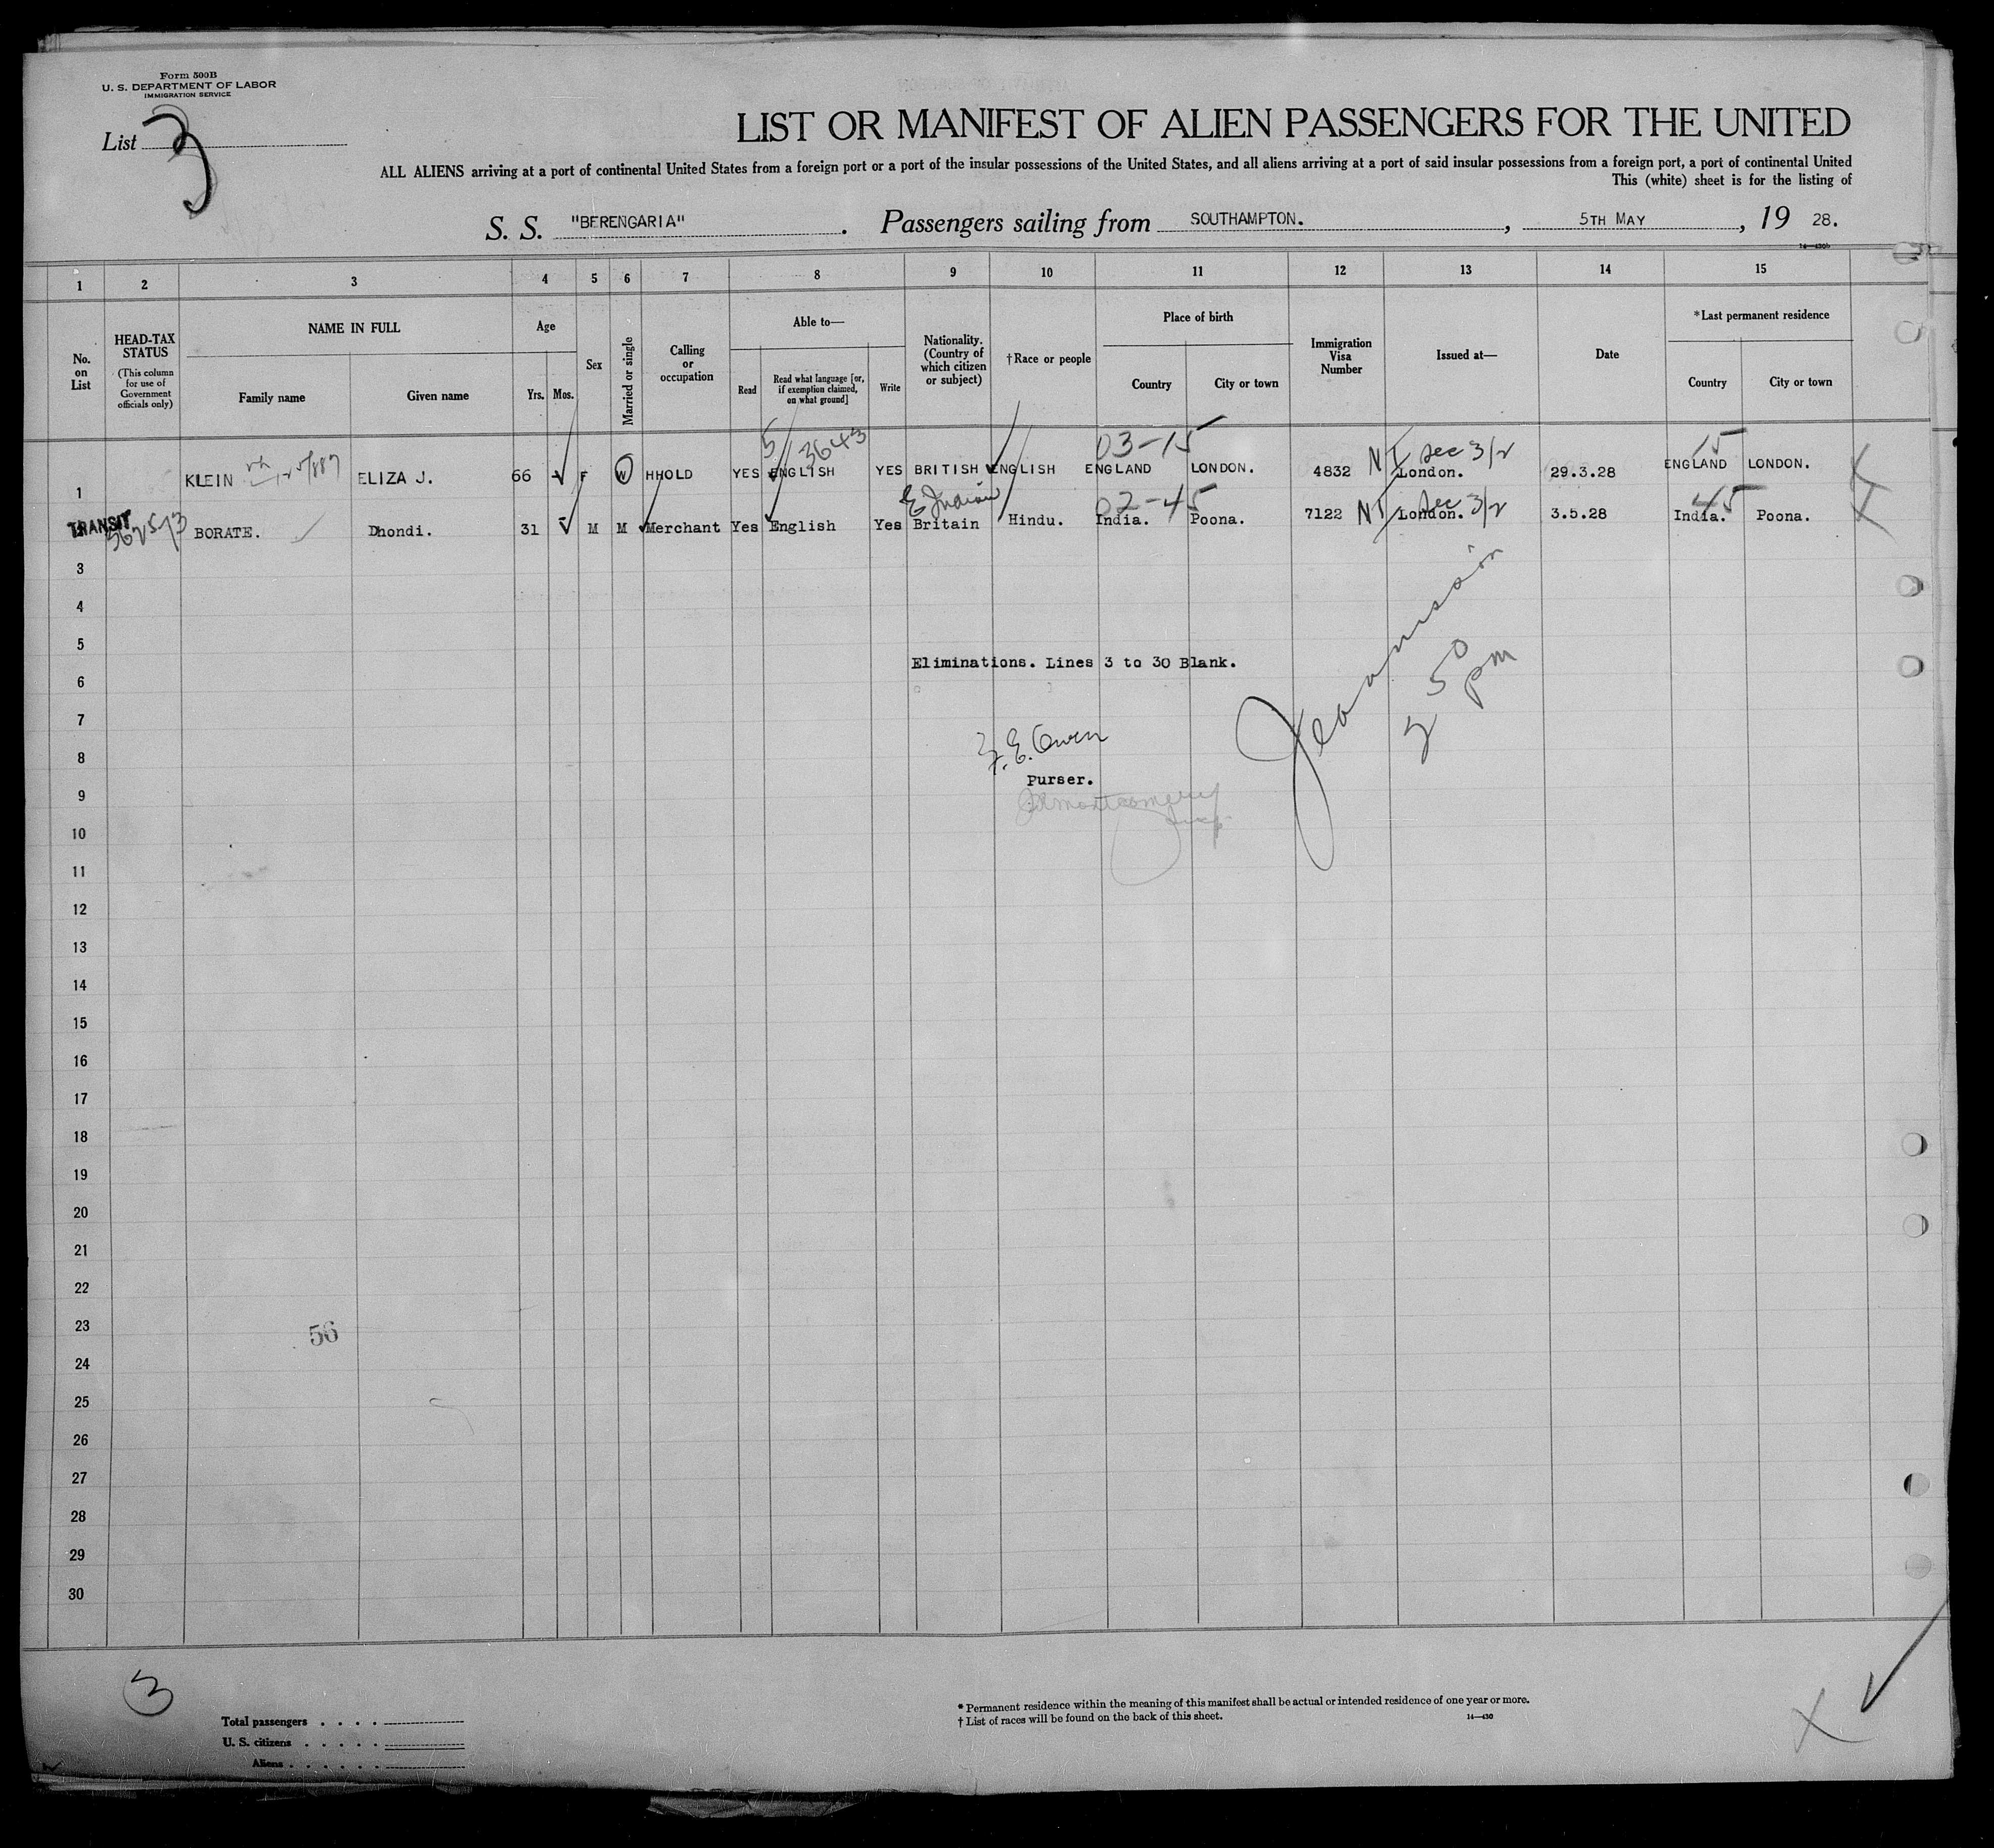 Form 500B
U. S. DEPARTMENT OF LABOR
IMMIGRATION SERVICE
List 3
LIST OR MANIFEST OF ALIEN PASSENGERS FOR THE UNITED
ALL ALIENS arriving at a port of continental United States from a foreign port or a port of the insular possessions of the United States, and all aliens arriving at a port of said insular possessions from a foreign port, a port of continental United
This (white) sheet is for the listing of
S. S. "BERENGARIA". Passengers sailing from SOUTHAMPTON., 5TH MAY, 19 28.
1 2 3 4 5 6 7 8 9 10 11 12 13 14 15
No. on List
HEAD-TAX STATUS
(This column for use of Government officials only)
NAME IN FULL
Family name Given name
Age
Yrs. Mos.
Sex
Married or single
Calling or occupation
Able to—
Read Read what language [or, if exemption claimed, on what ground] Write
Nationality. (Country of which citizen or subject)
†Race or people
Place of birth
Country City or town
Immigration Visa Number
Issued at—
Date
*Last permanent residence
Country City or town
5 3643 03-15 NI Sec 3/2 15
1 KLEIN ELIZA J. 66 F W HHOLD YES ENGLISH YES BRITISH ENGLISH ENGLAND LONDON. 4832 London. 29.3.28 ENGLAND LONDON.
E Indian 02-45 NI Sec 3/2 45
TRANSIT BORATE. Dhondi. 31 M M Merchant Yes English Yes Britain Hindu. India. Poona. 7122 London. 3.5.28 India. Poona.
3
4
5
Eliminations. Lines 3 to 30 Blank.
6
7
2 50 pm
F. E. Owen
8
Purser.
9
JRMontgomery
Insp
10
11
12
13
14
15
16
17
18
19
20
21
22
23
56
24
25
26
27
28
29
30
3
Total passengers
U. S. citizens
Aliens
* Permanent residence within the meaning of this manifest shall be actual or intended residence of one year or more.
† List of races will be found on the back of this sheet.
14—430